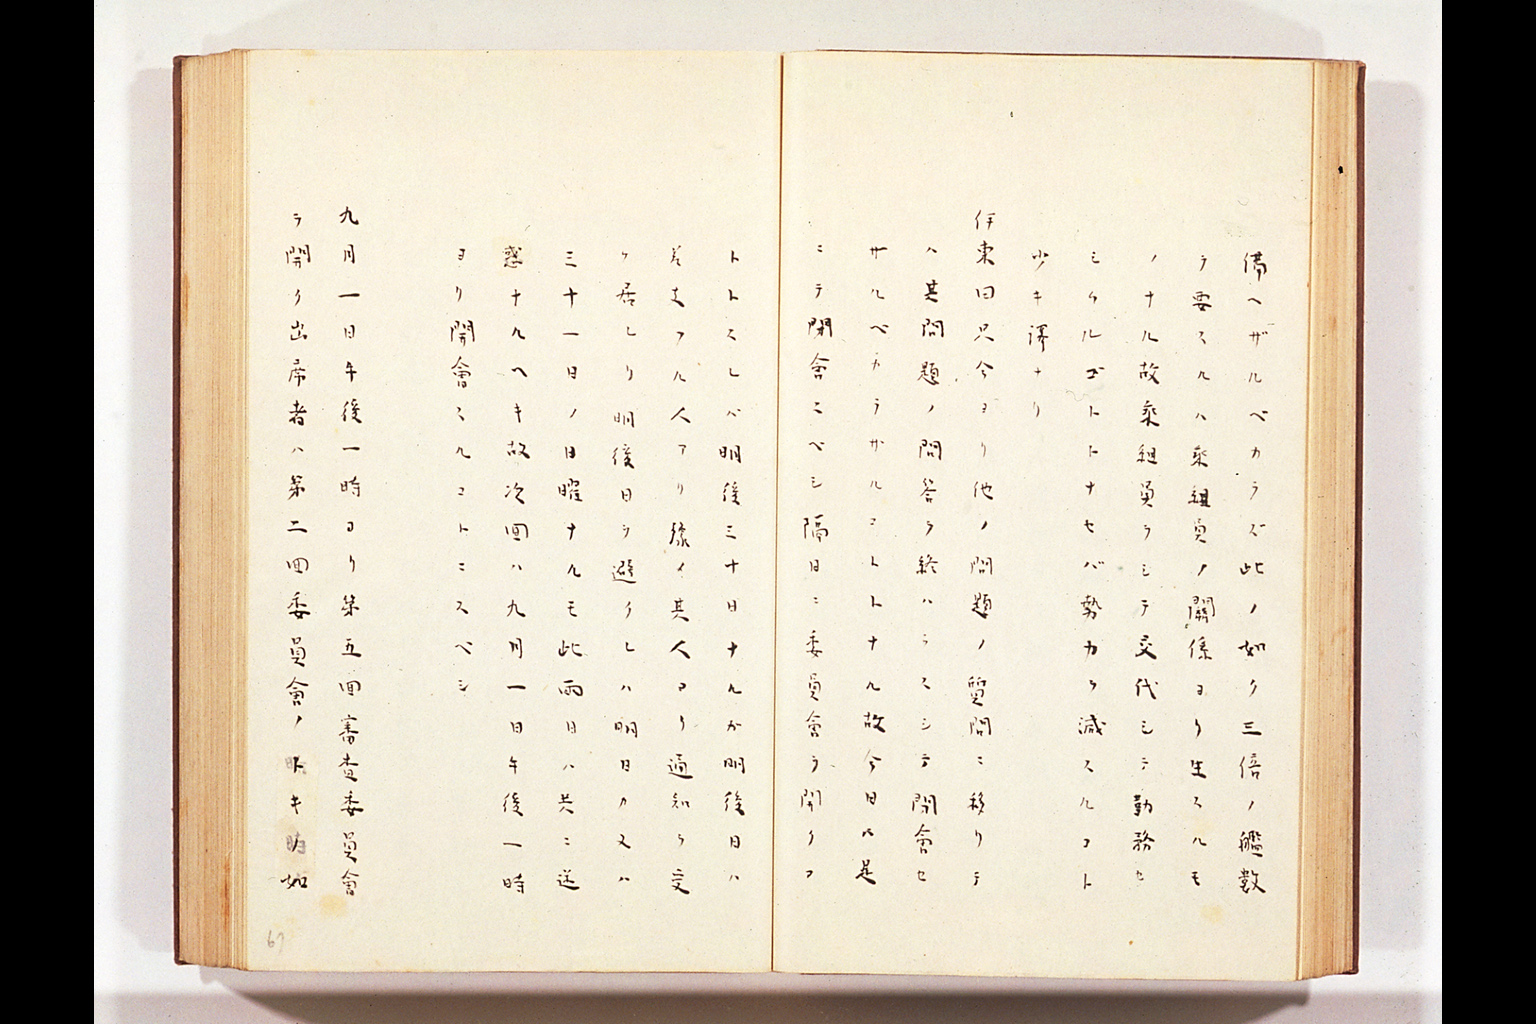 備ヘザルベカラズ此ノ如ク三倍ノ艦数
ヲ要スルハ乗組員ノ關係ヨリ生スルモ
ノナル故乗組員ヲシテ交代シテ勤務セ
シムルゴトトナセバ勢力ヲ減スルコト
少キ譯ナリ
伊東曰只今ヨリ他ノ問題ノ質問ニ移リテ
ハ其問題ノ問答ヲ終ハラスシテ閉會セ
サルベカラザルコトトナル故今日ハ是
ニテ閉會スベシ隔日ニ委員會ヲ開クコ
トトスレバ明後三十日ナルガ明後日ハ
差支フル人アリ豫メ其人ヨリ通知ヲ受
ケ居レリ明後日ヲ避クレハ明日カ又ハ
三十一日ノ日曜ナルモ此両日ハ共ニ迷
惑ナルヘキ故次回ハ九月一日午後一時
ヨリ開會スルコトニスベシ
九月一日午後一時ヨリ第五回審査委員會
ヲ開ク出席者ハ第二回委員會ノトキノ如
67